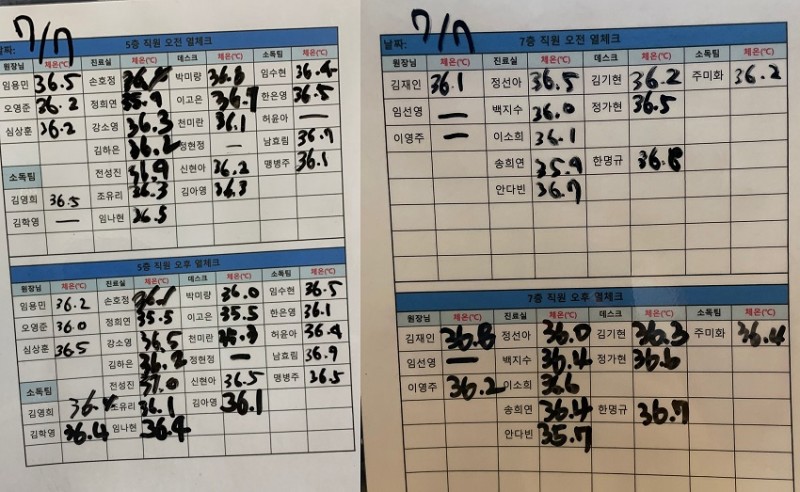 날짜: 7/7
5층 직원 오전 열체크
원장님 체온(℃) 진료실 체온(℃) 데스크 체온(℃) 소독팀 체온(℃)
임용민 36.5 손호정 박미량 36.8 임수현 36.4
오영준 36.2 정희연 35.9 이고은 36.7 한은영 36.5
심상훈 36.2 강소영 36.3 천미란 36.1 허윤아 —
김하은 36.2 정현정 — 남효림 36.7
소독팀 전성진 신현아 36.2 맹병주 36.1
김영희 36.5 조유리 36.3 김아영 36.3
김학영 — 임나현 36.5
5층 직원 오후 열체크
원장님 체온(℃) 진료실 체온(℃) 데스크 체온(℃) 소독팀 체온(℃)
임용민 36.2 손호정 36.1 박미량 36.0 임수현 36.5
오영준 36.0 정희연 35.5 이고은 35.5 한은영 36.1
심상훈 36.5 강소영 36.5 천미란 허윤아 36.4
김하은 36.2 정현정 — 남효림 36.9
소독팀 전성진 37.0 신현아 36.5 맹병주 36.5
김영희 조유리 36.1 김아영 36.1
김학영 36.4 임나현 36.4
날짜: 7/7
7층 직원 오전 열체크
원장님 체온(℃) 진료실 체온(℃) 데스크 체온(℃) 소독팀 체온(℃)
김재인 36.1 정선아 36.5 김기현 36.2 주미화 36.2
임선영 — 백지수 36.0 정가현 36.5
이영주 — 이소희 36.1
송희연 35.9 한명규 36.8
안다빈 36.7
7층 직원 오후 열체크
원장님 체온(℃) 진료실 체온(℃) 데스크 체온(℃) 소독팀 체온(℃)
김재인 36.8 정선아 36.0 김기현 36.3 주미화 36.4
임선영 — 백지수 36.4 정가현 36.6
이영주 36.2 이소희 36.6
송희연 36.4 한명규 36.7
안다빈 35.7